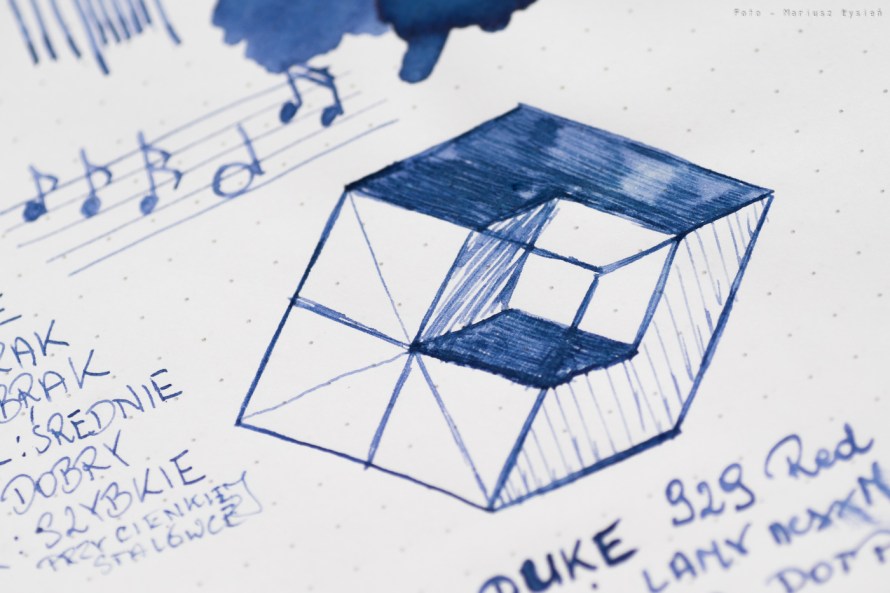 Foto - Mariusz Łysień
RAK
BRAK
: ŚREDNIE
DOBRY
: SZYBKIE
PRZY CIENKIEJ
STALÓWCE
DUKE 929 Red
LAMY